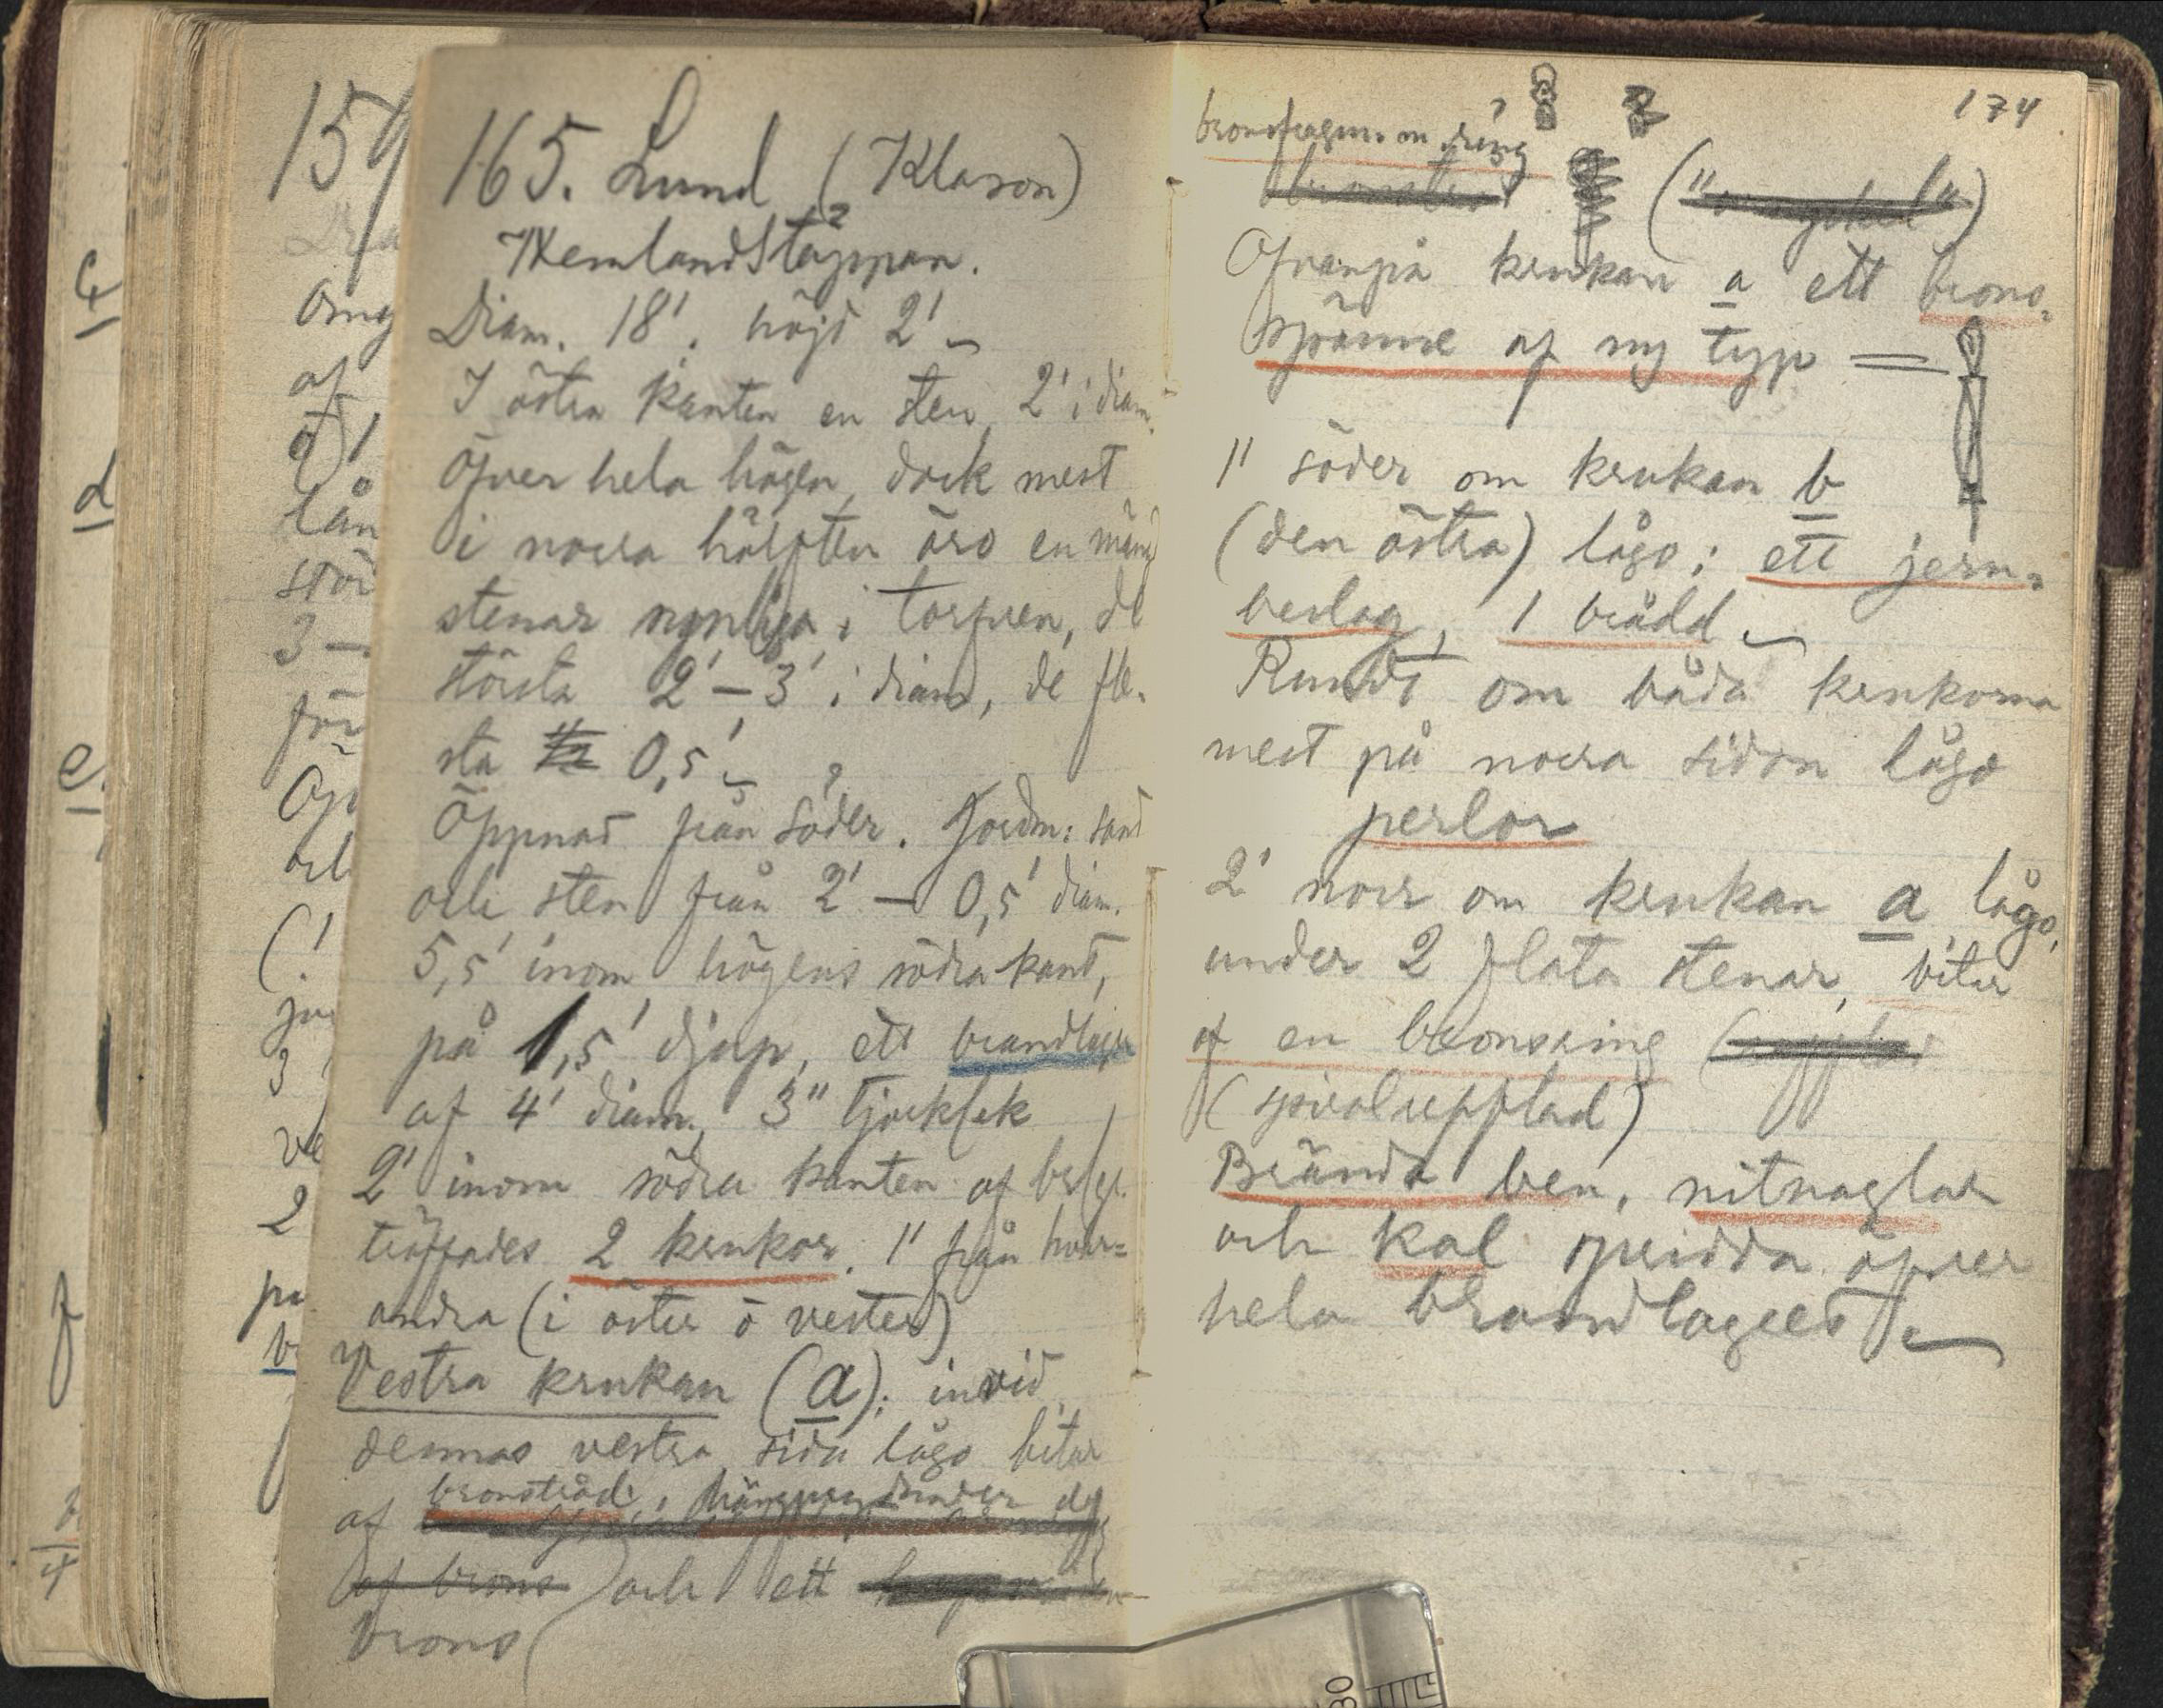 165. Lund (Klason)
Hemlandstäppan.
Diam. 18'. höjd 2'
I östra kanten en sten, 2' i diam.
Öfver hela högen, dock mest
i norra hälften äro en mängd
stenar synliga i torfven, de
största 2'–3' i diam, de fle-
sta 0,5'
Öppnad från söder. Jordm: sand
och sten från 2' – 0,5' diam.
5,5' inom högens södra kant,
på 1,5' djup, ett brandlager
af 4' diam., 3" tjocklek
2' inom södra kanten af br.lgr.
träffades 2 krukor, 1' från hvar-
andra (i öster o vester)
Vestra krukan (a); invid
dennas vestra sida lågo bitar
bronstråd,
af
af brons och ett
brons
174
bronsfragm. en ring
Ofvanpå krukan a ett brons-
spänne af ny typ =
1' söder om krukan b
(den östra) lågo: ett jern-
beslag, 1 brädd
Rundt om båda krukorna
mest på norra sidan lågo
perlor
2' norr om krukan a lågo,
under 2 flata stenar, bitar
af en bronsring
(spiralrefflad)
Brända ben, nitnaglar
och kol spridda öfver
hela brandlagret
159
Omg
af
lån
stör
3 –
för
Öp
och
3
ve
2
på
c
d
e.
f